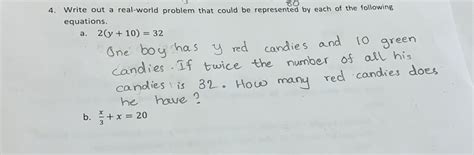 80
4. Write out a real-world problem that could be represented by each of the following
equations.
a. 2(y + 10) = 32
One boy has y red candies and 10 green
candies. If twice the number of all his
candies is 32. How many red candies does
he have?
b. x/3 + x = 20